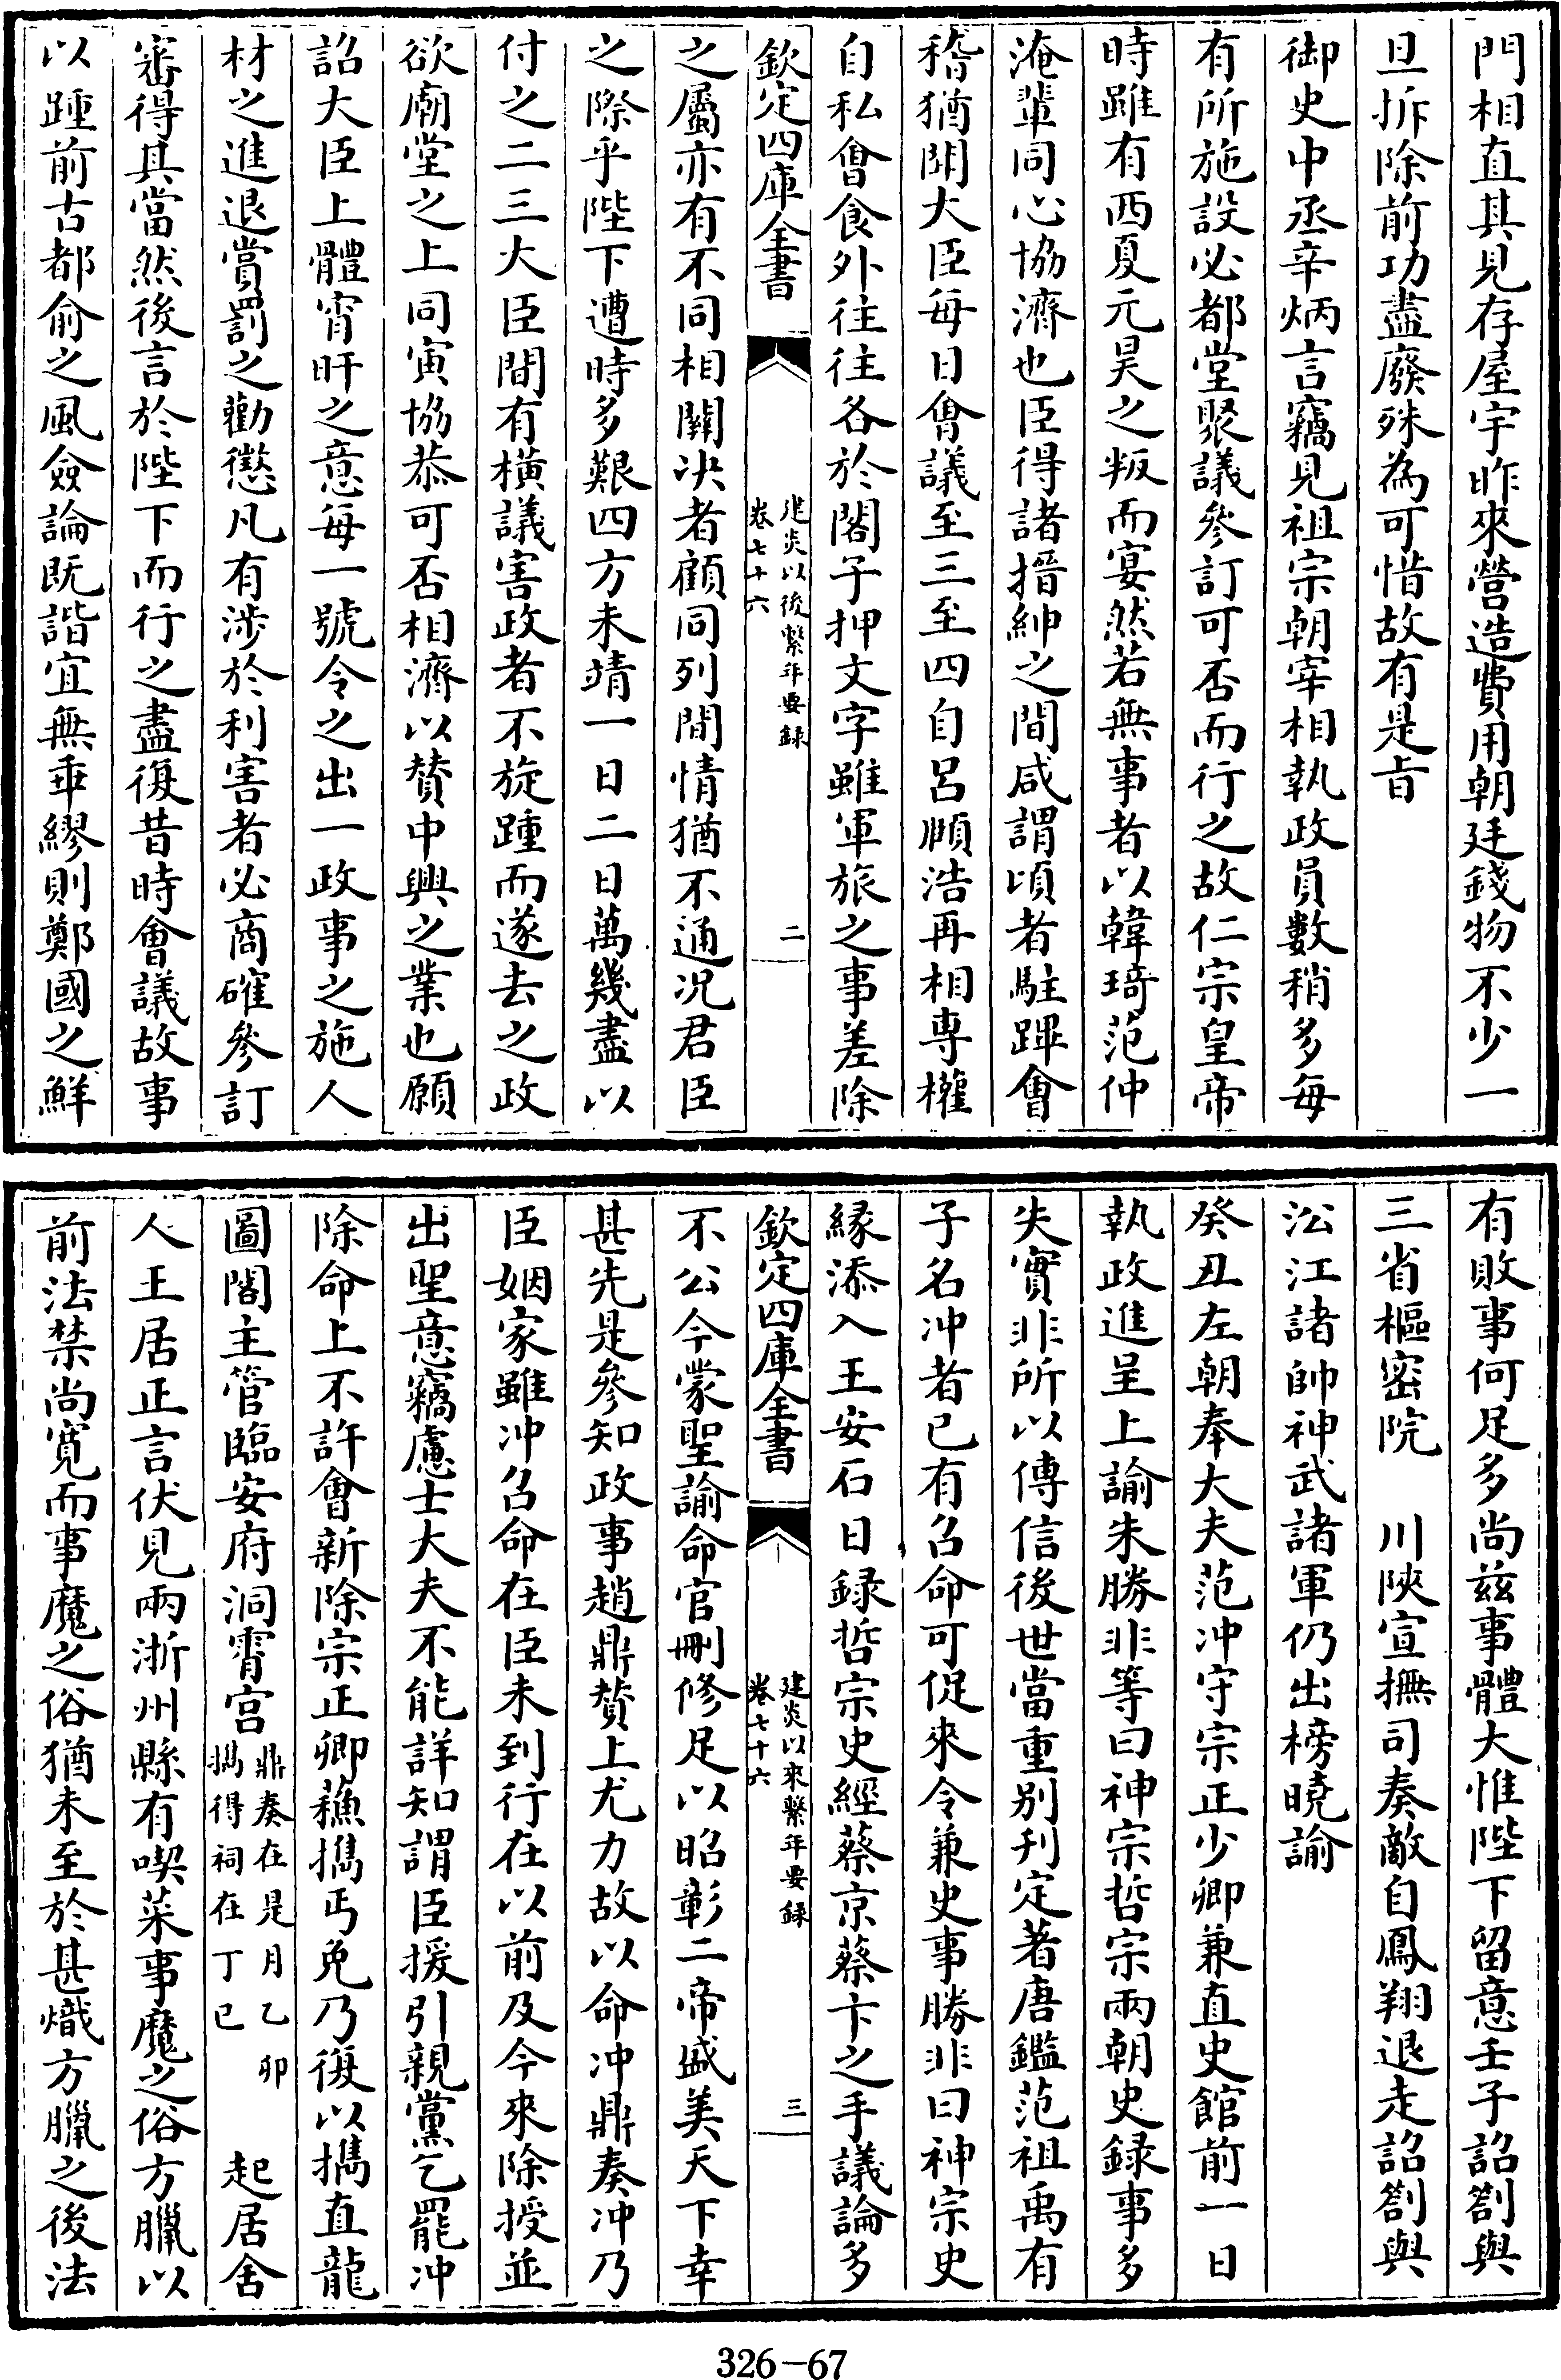 門相直其見存屋宇昨來營造費用朝廷錢物不少一
旦拆除前功盡廢殊為可惜故有是㫖
御史中丞辛炳言竊見祖宗朝宰相執政員數稍多每
有所施設必都堂聚議參訂可否而行之故仁宗皇帝
時雖有西夏元昊之叛而宴然若無事者以韓琦范仲
淹輩同心協濟也臣得諸搢紳之間咸謂頃者駐蹕會
稽猶聞大臣每日會議至三至四自呂頤浩再相專權
自私會食外往往各於閣子押文字雖軍旅之事差除
欽定四庫全書
建炎以後繫年要録
卷七十六
二
之屬亦有不同相關决者顧同列間情猶不通况君臣
之際乎陛下遭時多艱四方未靖一日二日萬幾盡以
付之二三大臣間有橫議害政者不旋踵而遂去之政
欲廟堂之上同寅協恭可否相濟以賛中興之業也願
詔大臣上體宵旰之意每一號令之出一政事之施人
材之進退賞罰之勸懲凡有涉於利害者必商確參訂
審得其當然後言於陛下而行之盡復昔時會議故事
以踵前古都俞之風僉論既諧宜無乖繆則鄭國之鮮
有敗事何足多尚兹事體大惟陛下留意壬子詔劄與
三省樞密院　川陜宣撫司奏敵自鳳翔退走詔劄與
㳂江諸帥神武諸軍仍出榜曉諭
癸丑左朝奉大夫范冲守宗正少卿兼直史館前一日
執政進呈上諭朱勝非等曰神宗哲宗兩朝史録事多
失實非所以傳信後世當重别刋定著唐鑑范祖禹有
子名冲者已有召命可促來令兼史事勝非曰神宗史
縁添入王安石日録哲宗史經蔡京蔡卞之手議論多
欽定四庫全書
建炎以來繫年要録
卷七十六
三
不公今蒙聖諭命官刪修足以昭彰二帝盛美天下幸
甚先是參知政事趙鼎賛上尤力故以命冲鼎奏冲乃
臣姻家雖冲召命在臣未到行在以前及今來除授並
出聖意竊慮士大夫不能詳知謂臣援引親黨乞罷冲
除命上不許會新除宗正卿蘓攜丐免乃復以攜直龍
圖閣主管臨安府洞霄宫鼎奏在是月乙卯攜得祠在丁巳　起居舍
人王居正言伏見兩浙州縣有喫菜事魔之俗方臘以
前法禁尚寛而事魔之俗猶未至於甚熾方臘之後法
326-67